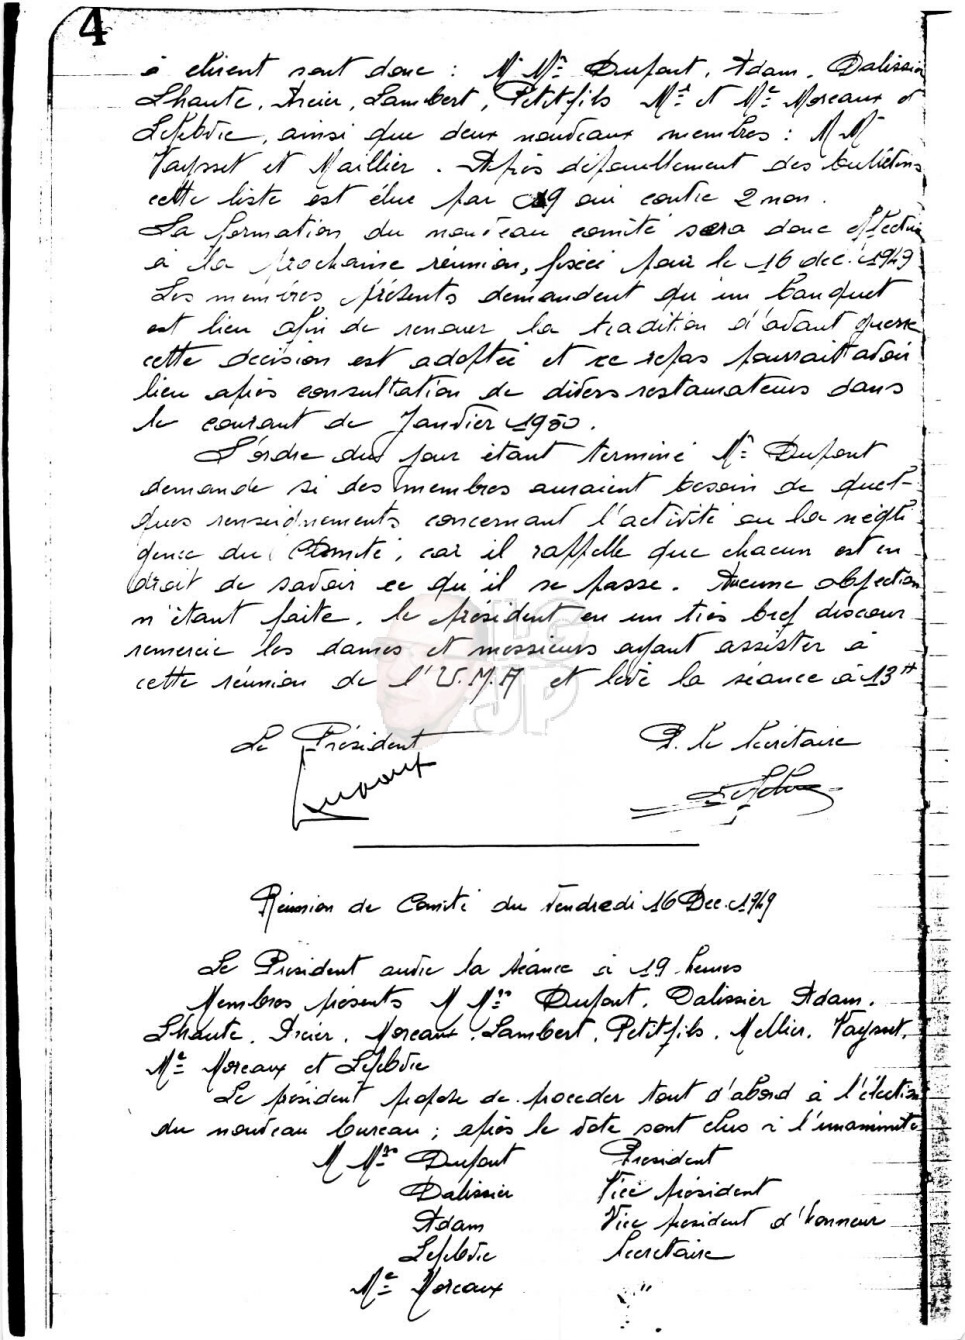 4
à élirent sont donc : M Mrs Dupont, Adam, Dalissier
Lhaute, Acier, Lambert, Petitfils Mr et Me Moreaux et
Lefebvre, ainsi que deux nouveaux membres : M M
Vaysset et Maillier. Après dépouillement des bulletins
cette liste est élue par 9 oui contre 2 non.
La formation du nouveau comité sera donc effectué
à la prochaine réunion, fixée pour le 16 dec. 1949
Les membres présents demandent qu'un banquet
est lieu afin de renouer la tradition d'avant guerre
cette décision est adoptée et ce repas pourrait avoir
lieu après consultation de divers restaurateurs dans
le courant de Janvier 1950.
L'ordre du jour étant terminé Mr Dupont
demande si des membres auraient besoin de quel-
ques renseignements concernant l'activité ou la négli
gence du Comité, car il rappelle que chacun est en
droit de savoir ce qu'il se passe. Aucune objection
n'étant faite, le président en un très bref discour
remercie les dames et messieurs ayant assister à
cette réunion de l'U.M.A et lève la séance à 13H
LG
JP
Le Président
P. le Secrétaire
Dupont
Réunion de Comité du Vendredi 16 Dec. 1949
Le Président ouvre la séance à 19 heures
Membres présents M Mrs Dupont, Dalissier Adam,
Lhaute, Acier, Moreaux, Lambert, Petitfils, Mellier, Vaysset,
Me Moreaux et Lefebvre
Le président propose de proceder tout d'abord à l'élection
du nouveau bureau ; après le vote sont élus à l'unanimité
M Mrs Dupont President
Dalissier Vice président
Adam Vice president d'honneur
Lefebvre Secretaire
Me Moreaux "